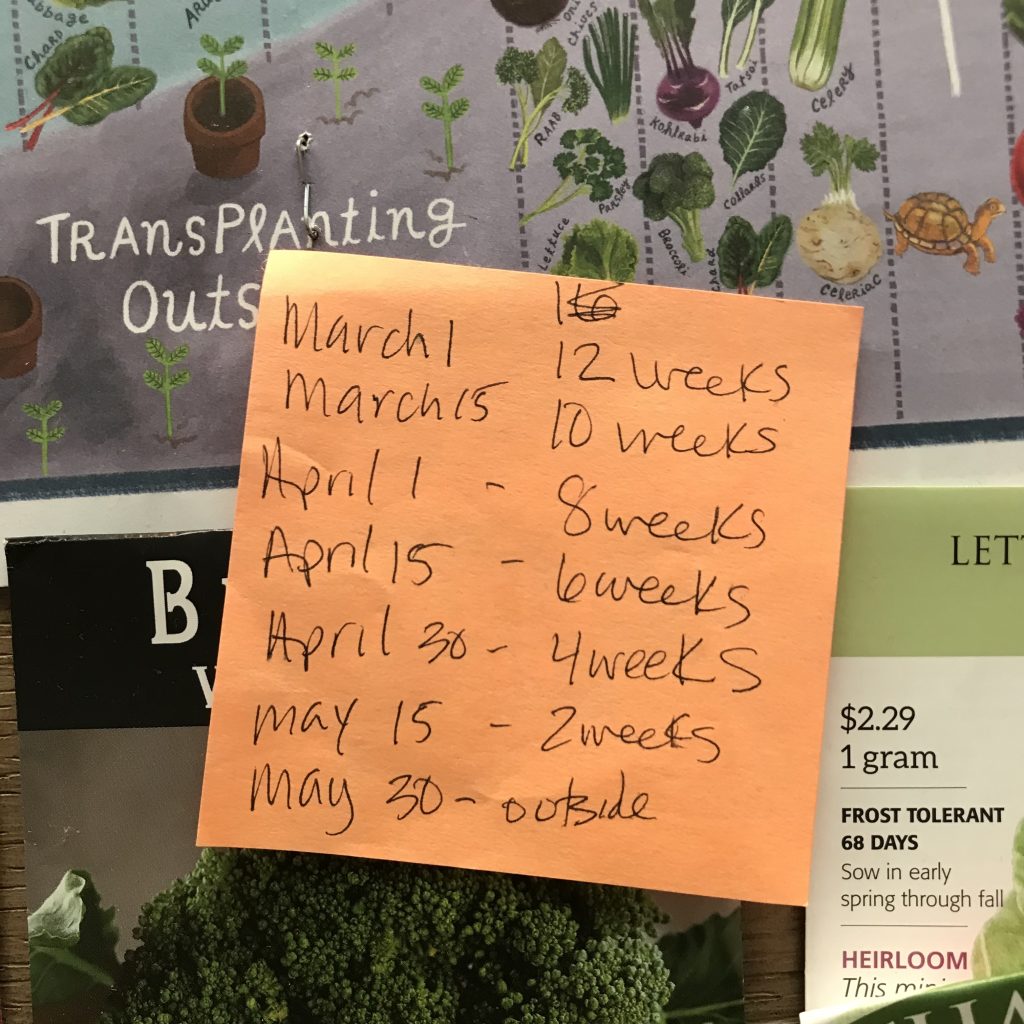 Cabbage
Chard
Chives
RAAB
Parsley
Lettuce
Kohlrabi
Tatsoi
Collards
Broccoli
Chard
Celery
Celeriac
TRANSPlAnting
Outs
March 1 12 weeks
March 15 10 weeks
April 1 - 8 weeks
April 15 - 6 weeks
April 30 - 4 weeks
May 15 - 2 weeks
May 30 - outside
B
LET
$2.29
1 gram
FROST TOLERANT
68 DAYS
Sow in early
spring through fall
HEIRLOOM
This